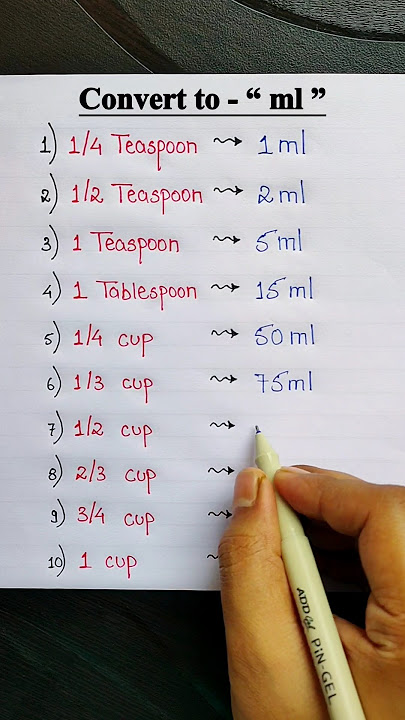 Convert to - “ ml ”
1) 1/4 Teaspoon ⤳ 1 ml
2) 1/2 Teaspoon ⤳ 2 ml
3) 1 Teaspoon ⤳ 5 ml
4) 1 Tablespoon ⤳ 15 ml
5) 1/4 cup ⤳ 50 ml
6) 1/3 cup ⤳ 75 ml
7) 1/2 cup ⤳
8) 2/3 cup ⤳
9) 3/4 cup ⤳
10) 1 cup
ADD Gel PiN-GEL